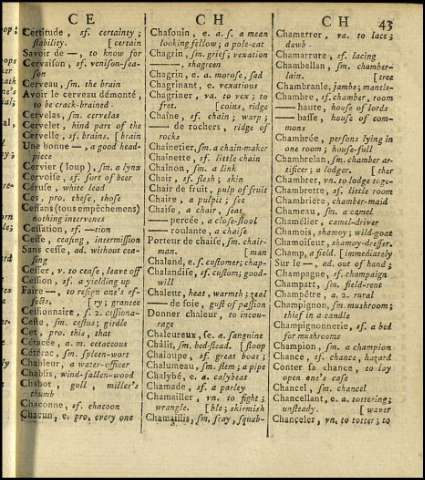 CE
CH
CH
43
Certitude, sf. certainty;
stability. [certain
Savoir de —, to know for
Cervaison, sf. venison-sea-
son
Cerveau, sm. the brain
Avoir le cerveau démonté,
to be crack-brained
Cervelas, sm. cervelas
Cervelet, hind part of the
Cervelle, sf. brains, [brain
Une bonne —, a good head-
piece
Cervier (loup), sm. a lynx
Cervoise, sf. sort of beer
Céruse, white lead
Ces, pro. these, those
Cessans (tous empêchemens)
nothing intervenes
Cessation, sf. —tion
Cesse, ceasing, intermission
Sans cesse, ad. without cea-
sing
Cesser, v. to cease, leave off
Cession, sf. a yielding up
Faire —, to resign one's ef-
fects, [ry; grantee
Cessionnaire, s. 2. cessiona-
Ceste, sm. cestus; girdle
Cet, pro. this, that
Cétacée, a. m. cetaceous
Cétérac, sm. spleen-wort
Chableur, a water-officer
Chablis, wind-fallen-wood
Chabot, goll, miller's
thumb
Chaconne, sf. chacoon
Chacun, e. pro. every one
Chafouin, e. a. s. a mean
looking fellow; a pole-cat
Chagrin, sm. grief; vexation
———, shagreen
Chagrin, e. a. morose, sad
Chagrinant, e. vexatious
Chagriner, va. to vex; to
fret. [coins, ridge
Chaîne, sf. chain; warp;
— de rochers, ridge of
rocks
Chaînetier, sm. a chain-maker
Chaînette, sf. little chain
Chaînon, sm. a link
Chair, sf. flesh; skin
Chair de fruit, pulp of fruit
Chaire, a pulpit; see
Chaise, a chair, seat
— percée, a close-stool
— roulante, a chaise
Porteur de chaise, sm. chair-
man. [man
Chaland, e. s. customer; chap-
Chalandise, sf. custom; good-
will
Chaleur, heat, warmth; zeal
— de foie, gust of passion
Donner chaleur, to encou-
rage
Chaleureux, se, a. sanguine
Châlit, sm. bed-stead. [sloop
Chaloupe, sf. great boat;
Chalumeau, sm. stem; a pipe
Chalybé, e. a. calybeat
Chamade, sf. a parley
Chamailler, vn. to fight;
wrangle. [ble; skirmish
Chamaillis, sm. fray, squab-
Chamarrer, va. to lace;
dawb
Chamarrure, sf. lacing
Chambellan, sm. chamber-
lain. [tree
Chambranle, jambe; mantle-
Chambre, sf. chamber, room
— haute, house of lords
— basse, house of com-
mons
Chambrée, persons lying in
one room; house-full
Chambrelan, chamber ar-
tificer; a lodger. [ther
Chambrer, vn. to lodge toge-
Chambrette, sf. little room
Chambrière, chamber-maid
Chameau, sm. a camel
Chamélier, camel-driver
Chamois, shamoy; wild-goat
Chamoiseur, shamoy-dresser
Champ, a field. [immediately
Sur le —, ad. out of hand;
Champagne, sf. champaign
Champart, sm. field-rent
Champêtre, a. 2. rural
Champignon, sm. mushroom;
thief in a candle
Champignonnerie, sf. a bed
for mushrooms
Champion, sm. a champion
Chance, sf. chance, hazard
Conter sa chance, to lay
open one's case
Chancel, sm. chancel
Chancellant, e. a. tottering;
unsteady. [waver
Chanceler, vn. to totter; to